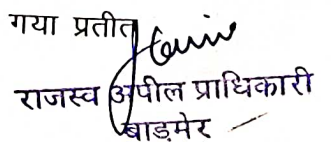 गया प्रतीत
राजस्व अपील प्राधिकारी
बाड़मेर